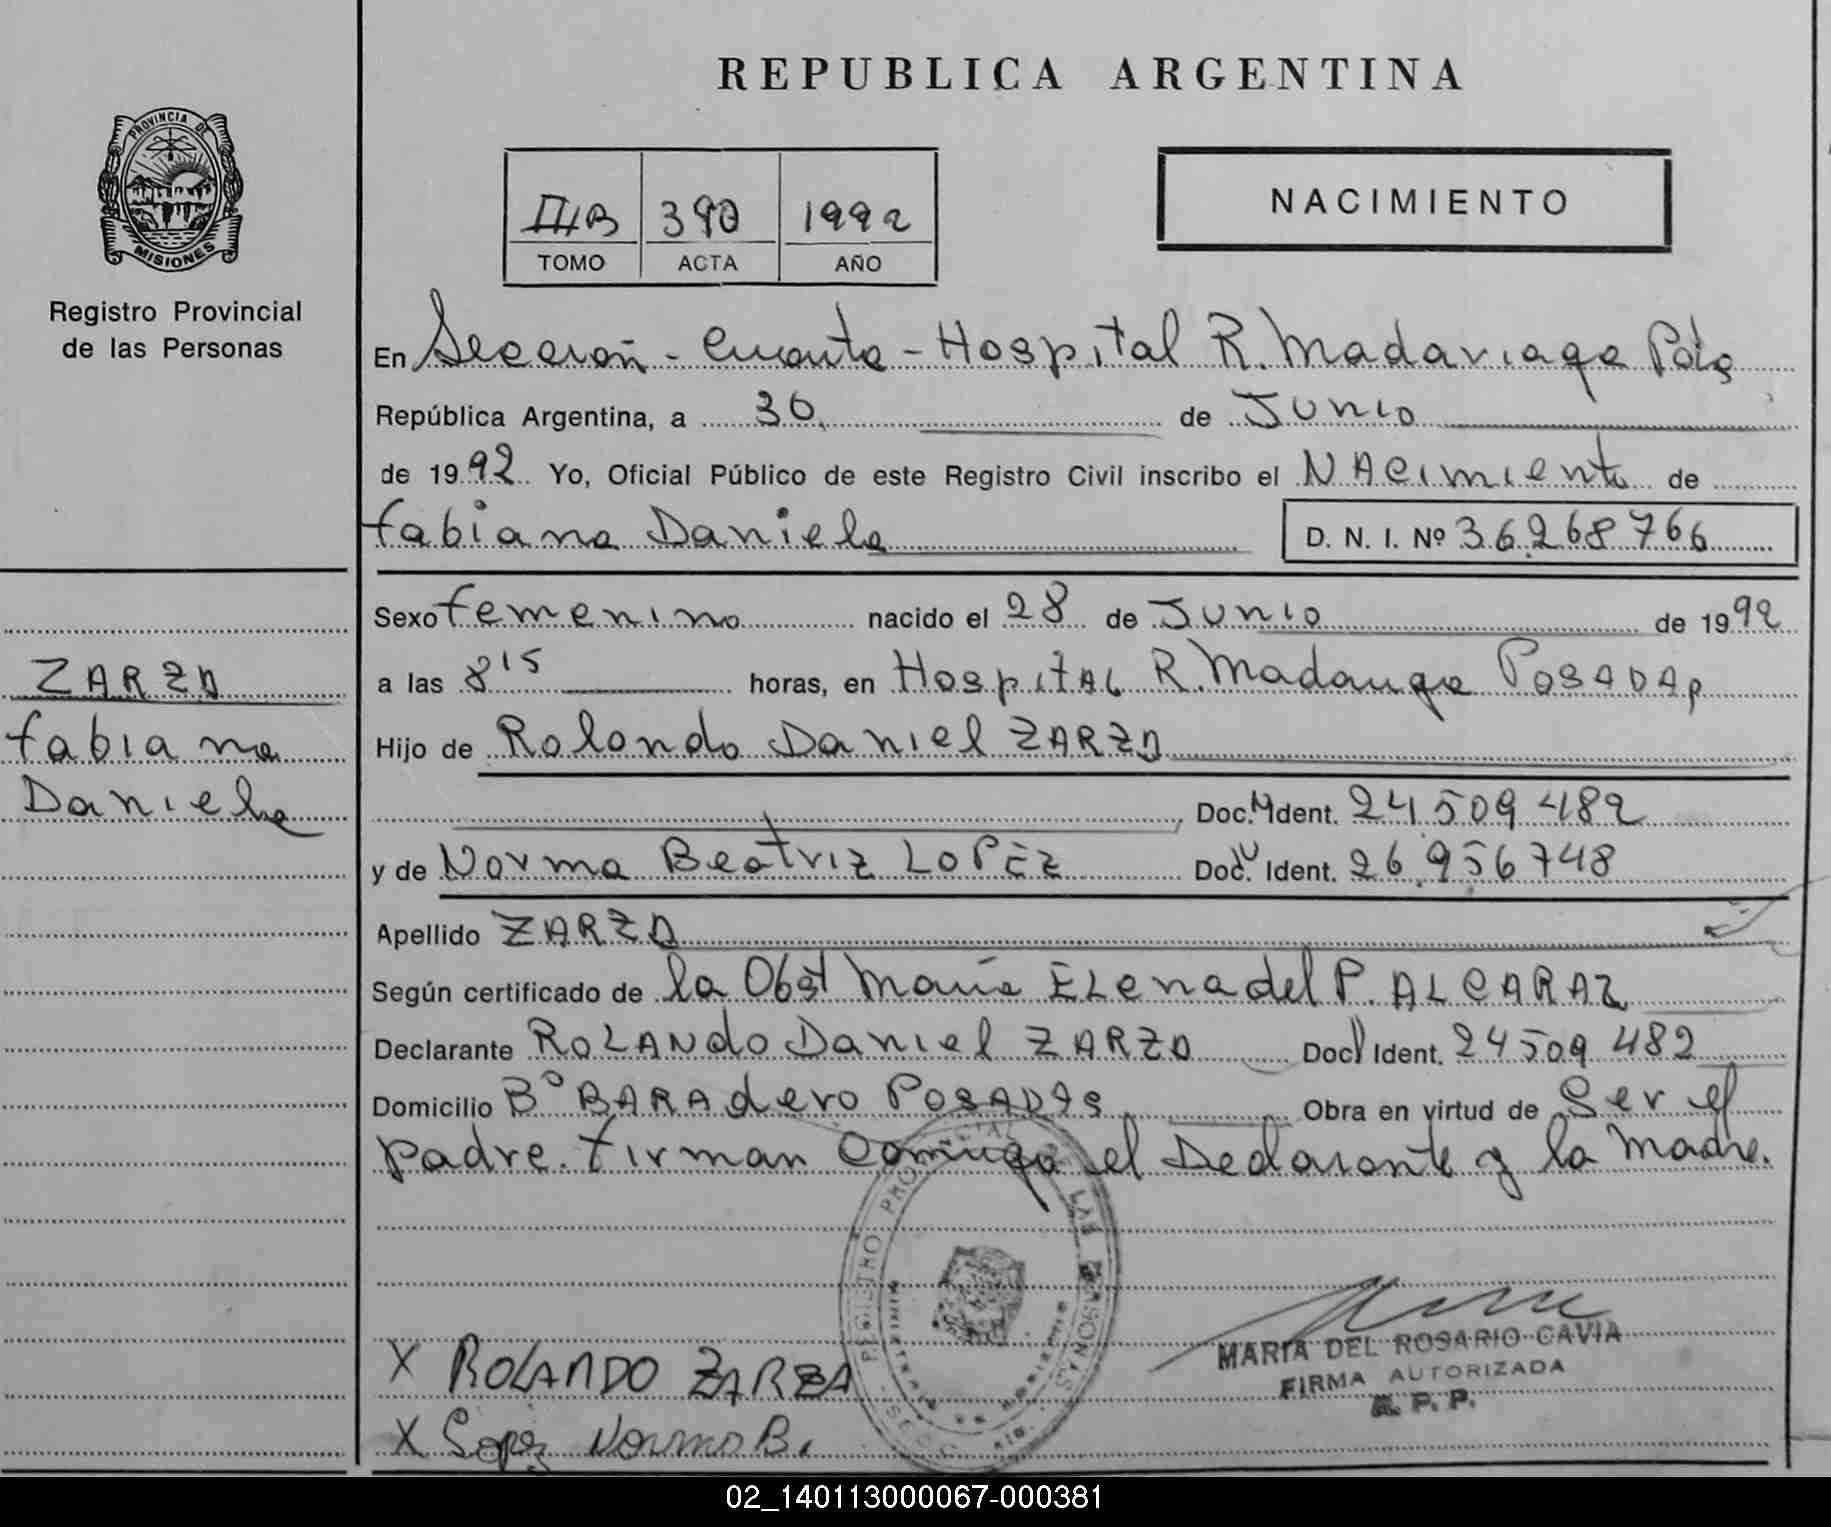 REPUBLICA ARGENTINA
PROVINCIA DE
MISIONES
Registro Provincial
de las Personas
III B 390 1992
TOMO ACTA AÑO
NACIMIENTO
En Sección - Cuarta - Hospital R. Madariaga Pdas
República Argentina, a 30 de Junio
de 1992 Yo, Oficial Público de este Registro Civil inscribo el NAcimiento de
Fabiana Daniela D. N. I. Nº 36.268766
Sexo Femenino nacido el 28 de Junio de 1992
ZARZA
a las 8 15 horas, en HospitAL R. Madariaga POSADAs
Fabiana
Hijo de Rolando Daniel ZARZA
Daniela
Doc. Ident. 24509482
y de Norma Beatriz LOPEZ Doc. U Ident. 26.956748
Apellido ZARZA
Según certificado de la Obst María ELena del P. ALCARAZ
Declarante ROLANdo Daniel ZARZA Doc Ident. 24509482
Domicilio Bº BARAdero POSADAS Obra en virtud de Ser el
padre. Firman Conmigo el Declarante y la Madre.
REGISTRO PROVINCIAL DE LAS PERSONAS
X ROLANDO ZARZA
X Lopez Norma B.
MARIA DEL ROSARIO CAVIA
FIRMA AUTORIZADA
R. P. P.
02_140113000067-000381